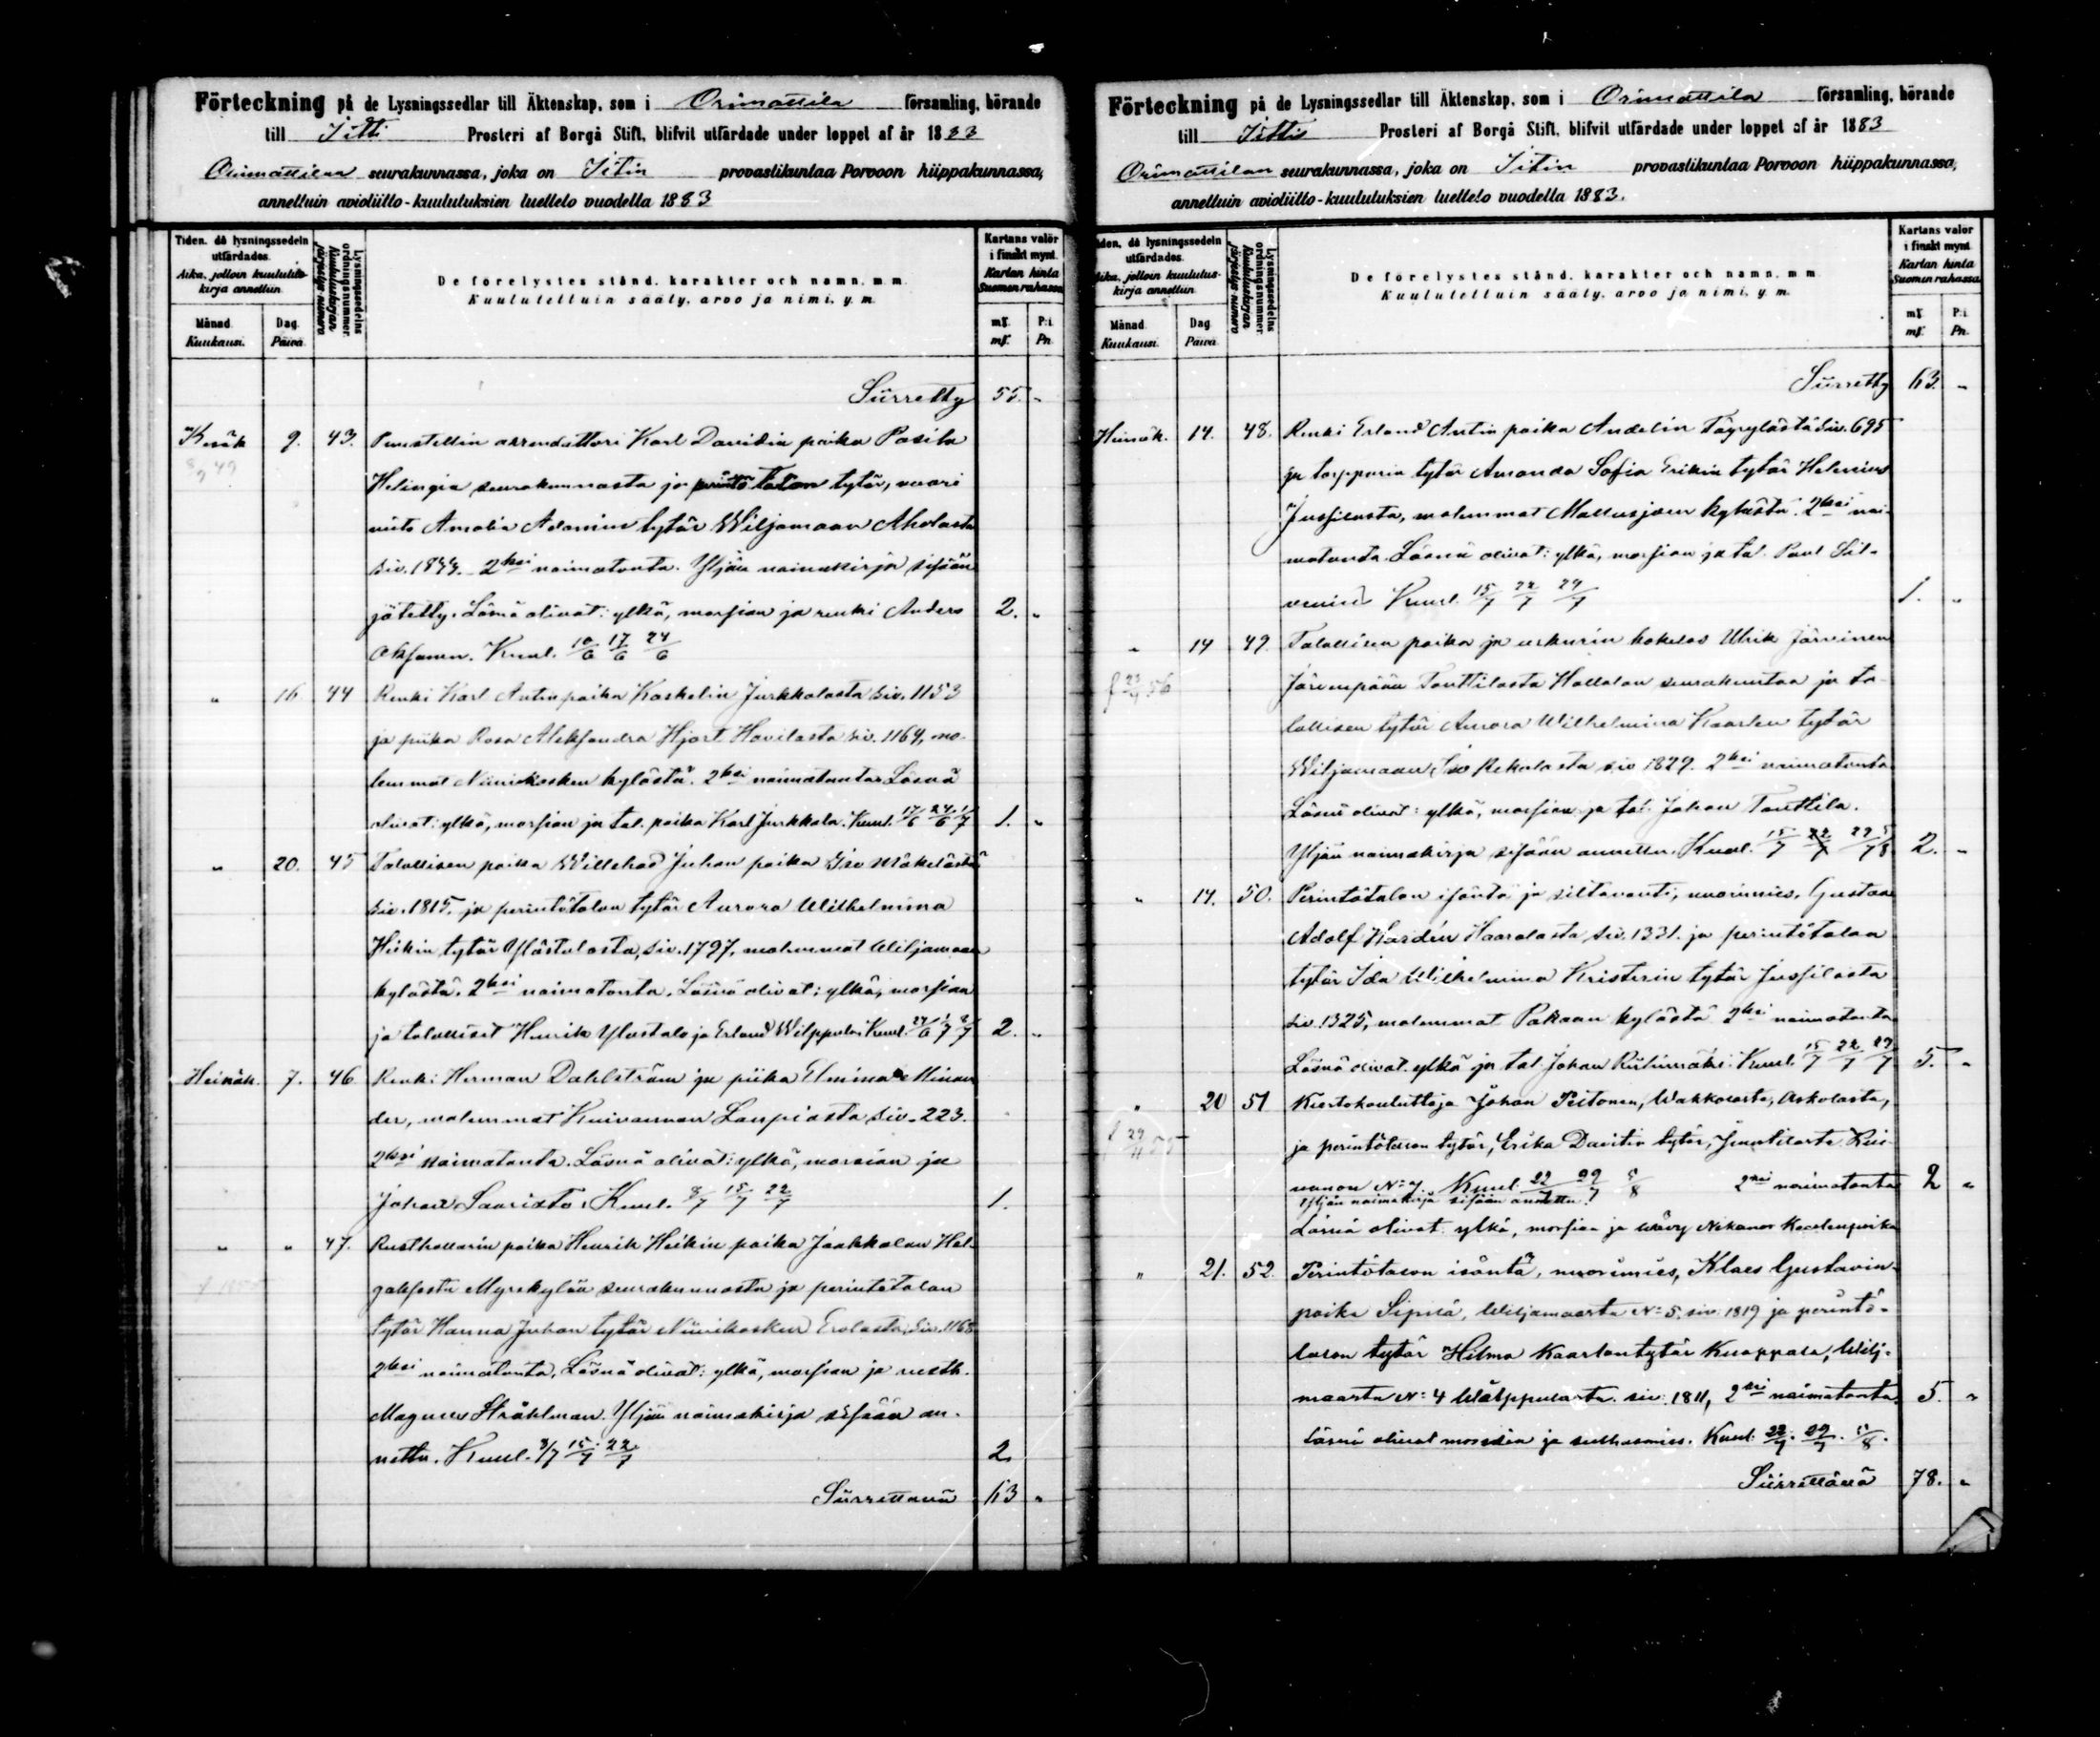 Förteckning på de Lysningssedlar till Äktenskap, som i Orimattila församling, hörande
till Iitti Prosteri af Borgå Stift, blifvit utfärdade under loppet af år 1883
Orimattilan seurakunnassa, joka on Iitin provastikuntaa Porvoon hiippakunnassa,
annettuin avioliitto-kuulutuksien luettelo vuodella 1883
Tiden, då lysningssedeln utfärdades.
Aika, jolloin kuulutuskirja annettiin
Månad. Kuukausi.
Dag. Päivä.
Lysningssedelns ordningsnummer.
Kuulutuskirjan järjestys-numero
De förelystes stånd, karakter och namn, m.m.
Kuulutettuin sääty, arvo ja nimi, y.m.
Kartans valör i finskt mynt.
Kartan hinta Suomen rahassa
mk. Pi.
mk. Pn.
Siirretty 55. "
Kesäk 9. 43. arrendattori Karl Davidin poika Pasila
Helingin seurakunnasta ja perintö talon tytär, nuori
Amalia Adamin tytär Wiljamaan Aholasta
siv. 1844. 2ksi naimatonta. Yljän naimakirja sisään
jätetty. Läsnä olivat: ylkä, morsian ja renki Anders 2. "
Kuul. 10/6 17/6 24/6
" 16 44 Renki Karl Antin poika Koskelin Jurkkolasta siv. 1153
ja piika Rosa Aleksandra Hjort Havilasta siv. 1164, mo-
lemmat Niinikosken kylästä. 2ksi naimatonta. Läsnä
olivat: ylkä, morsian ja tal. poika Karl Jurkkola. Kuul. 17/6 24/6 1/7 1. "
" 20. 45 Talollisen poika Willehad Juhan poika Iso Mäkelästä
siv. 1815. ja perintötalon tytär Aurora Wilhelmina
Heikin tytär Ylöstalosta, siv. 1797, molemmat Wiljamaan
kylästä. 2ksi naimatonta. Läsnä olivat: ylkä, morsian
ja talolliset Henrik Ylöstalo ja Erland Wilppula. Kuul. 24/6 1/7 8/7 2. "
Heinäk. 7. 46 Renki Herman Dahlström ja piika Elmina Minan
der, molemmat Kuivannon Laupiasta siv. 223.
2ksi naimatonta. Läsnä olivat: ylkä, morsian ja
Johan Saaristo. Kuul. 8/7 15/7 22/7 1.
" " 47. Rusthollarin poika Henrik Heikin poika Jaakkolan Hal-
Myrskylän seurakunnasta ja perintötalon
tytär Hanna Juhan tytär Niinikosken Erolasta, siv. 1168
2ksi naimatonta. Läsnä olivat: ylkä, morsian ja rusth.
Magnus Stråhlman. Yljän naimakirja sisään an-
nettu. Kuul. 8/7 15/7 22/7 2.
Siirrettävä 63 "
Förteckning på de Lysningssedlar till Äktenskap, som i Orimattila församling, hörande
till Iittis Prosteri af Borgå Stift, blifvit utfärdade under loppet af år 1883
Orimattilan seurakunnassa, joka on Iitin provastikuntaa Porvoon hiippakunnassa,
annettuin avioliitto-kuulutuksien luettelo vuodella 1883.
Tiden, då lysningssedeln utfärdades.
Aika, jolloin kuulutuskirja annettiin
Månad. Kuukausi.
Dag Päivä.
Lysningssedelns ordningsnummer.
Kuulutuskirjan järjestys-numero
De förelystes stånd, karakter och namn, m m.
Kuulutettuin sääty, arvo ja nimi, y.m.
Kartans valör i finskt mynt
Kartan hinta Suomen rahassa
mk Pi.
mk. Pn.
Siirretty 63. "
Heinäk. 14. 48. Renki Erland Antin poika Andelin siv. 695
ja torpparin tytär Amanda Sofia Erikin tytär Helenius
Jussilasta, molemmat Mallusjoen kylästä. 2ksi nai-
matonta. Läsnä olivat: ylkä, morsian ja tal. Paul Sil-
Kuul. 15/7 22/7 29/7 1. "
" 14 49. Talollisen poika ja urkurin kokelas Ulrik Järvinen
Järvenpään Tanttilasta Hollolan seurakuntaa ja ta-
lollisen tytär Aurora Wilhelmina Kaarlen tytär
Wiljamaan Iso Rekolasta siv 1829. 2ksi naimatonta
Läsnä olivat: ylkä, morsian ja tal. Johan Tanttila.
Yljän naimakirja sisään annettu. Kuul. 15/7 22/7 29/7 5/8 2. "
" 14. 50. Perintötalon isäntä ja siltavouti, nuorimies, Gustaa
Adolf Hardén Haaralasta, siv. 1331. ja perintötalon
tytär Ida Wilhelmina Kristerin tytär Jussilasta
siv. 1325, molemmat Pakaan kylästä 2ksi naimatonta
Läsnä olivat ylkä ja tal. Johan Riihimäki. Kuul. 15/7 22/7 29/7 5. "
" 20 51 Kiertokouluttaja Johan Peitonen, Wakkolasta, Askolasta,
ja perintötalon tytär, Erika Davitin tytär, Kui-
vanon Kuul. 22 29/7 5/8 2ksi naimatonta 2 "
Yljän naimakirja sisään annettu.
Läsnä olivat ylkä, morsian ja vävy Nikanor Kaarlenpoika
" 21. 52. Perintötalon isäntä, nuorimies, Klaes Gustavin-
poika Sipilä, Wiljamaarta N:o 5, siv. 1819 ja perintö-
talon tytär Hilma Kaarlentytär Knappala, Wilj-
maarta N:o 4 siv. 1811, 2ksi naimatonta. 5. "
Läsnä olivat morsian ja sulhasmies. Kuul. 22/7. 29/7. 5/8.
Siirrettävä 78. "